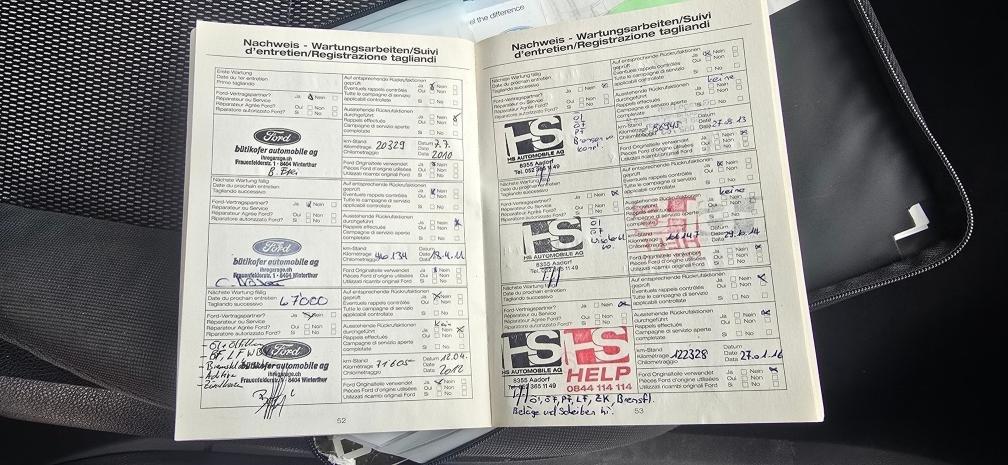 el the difference
Nachweis - Wartungsarbeiten/Suivi
d'entretien/Registrazione tagliandi
Erste Wartung
Date du 1er entretien
Primo tagliando
Auf entsprechende Rückrufaktionen
geprüft
Eventuels rappels contrôlés
Tutte le campagne di servizio
applicabili controllate
Ja Nein
Oui Non
Si No
Ford-Vertragspartner?
Réparateur ou Service
Réparateur Agréé Ford?
Riparatore autorizzato Ford?
Ja Nein
Oui Non
Si No
Ausstehende Rückrufaktionen
durchgeführt
Rappels effectués
Campagne di servizio aperte
completate
Ja Nein
Oui Non
Si No
Ford
bütikofer automobile ag
ihregarage.ch
Frauenfelderstr. 1 · 8404 Winterthur
km-Stand
Kilométrage
Chilometraggio
20329
Datum
Date
Data
7.7.
2010
Ford Originalteile verwendet
Pièces Ford d'origine utilisées
Utilizzati ricambi originali Ford
Ja Nein
Oui Non
Si No
Nächste Wartung fällig
Date du prochain entretien
Tagliando successivo
Auf entsprechende Rückrufaktionen
geprüft
Eventuels rappels contrôlés
Tutte le campagne di servizio
applicabili controllate
Ja Nein
Oui Non
Si No
Ford-Vertragspartner?
Réparateur ou Service
Réparateur Agréé Ford?
Riparatore autorizzato Ford?
Ja Nein
Oui Non
Si No
Ausstehende Rückrufaktionen
durchgeführt
Rappels effectués
Campagne di servizio aperte
completate
Ja Nein
Oui Non
Si No
Ford
bütikofer automobile ag
ihregarage.ch
Frauenfelderstr. 1 · 8404 Winterthur
km-Stand
Kilométrage
Chilometraggio
46134
Datum
Date
Data
Ford Originalteile verwendet
Pièces Ford d'origine utilisées
Utilizzati ricambi originali Ford
Ja Nein
Oui Non
Si No
Nächste Wartung fällig
Date du prochain entretien
Tagliando successivo
Auf entsprechende Rückrufaktionen
geprüft
Eventuels rappels contrôlés
Tutte le campagne di servizio
applicabili controllate
Ja Nein
Oui Non
Si No
Ford-Vertragspartner?
Réparateur ou Service
Réparateur Agréé Ford?
Riparatore autorizzato Ford?
Ja Nein
Oui Non
Si No
Ausstehende Rückrufaktionen
durchgeführt
Rappels effectués
Campagne di servizio aperte
completate
Kein
Ja Nein
Oui Non
Si No
Ford
bütikofer automobile ag
ihregarage.ch
Frauenfelderstr. 1 · 8404 Winterthur
km-Stand
Kilométrage
Chilometraggio
71605
Datum
Date
Data
12.04.
2012
Ford Originalteile verwendet
Pièces Ford d'origine utilisées
Utilizzati ricambi originali Ford
Ja Nein
Oui Non
Si No
52
Nachweis - Wartungsarbeiten/Suivi
d'entretien/Registrazione tagliandi
Nächste Wartung fällig
Date du prochain entretien
Tagliando successivo
Auf entsprechende Rückrufaktionen
geprüft
Eventuels rappels contrôlés
Tutte le campagne di servizio
applicabili controllate
Ja Nein
Oui Non
Si No
Ford-Vertragspartner?
Ausstehende Rückrufaktionen
durchgeführt
Rappels effectués
Campagne di servizio aperte
completate
keine
HS
HS AUTOMOBILE AG
8355 Aadorf
Tel. 052 365 11 49
km-Stand
Kilométrage
Chilometraggio
Datum
Date
Data
27.03.13
Ford Originalteile verwendet
Pièces Ford d'origine utilisées
Utilizzati ricambi originali Ford
Nächste Wartung fällig
Date du prochain entretien
Tagliando successivo
Auf entsprechende Rückrufaktionen
geprüft
Eventuels rappels contrôlés
Tutte le campagne di servizio
applicabili controllate
Ford-Vertragspartner?
Réparateur ou Service
Réparateur Agréé Ford?
Riparatore autorizzato Ford?
keine
HS
HS AUTOMOBILE AG
km-Stand
Kilométrage
Chilometraggio
Datum
Date
Data
29.10.14
Ford Originalteile verwendet
Pièces Ford d'origine utilisées
Utilizzati ricambi originali Ford
Nächste Wartung fällig
Date du prochain entretien
Tagliando successivo
Auf entsprechende Rückrufaktionen
geprüft
Eventuels rappels contrôlés
Tutte le campagne di servizio
applicabili controllate
Ford-Vertragspartner?
Réparateur ou Service
Réparateur Agréé Ford?
Riparatore autorizzato Ford?
Ausstehende Rückrufaktionen
durchgeführt
Rappels effectués
Campagne di servizio aperte
completate
HS
HS AUTOMOBILE AG
8355 Aadorf
HS
HELP
0844 114 114
km-Stand
Kilométrage
Chilometraggio
122328
Datum
Date
Data
27.01.16
Ford Originalteile verwendet
Pièces Ford d'origine utilisées
Utilizzati ricambi originali Ford
Öl, ÖF, PF, LF, ZK, Bremsfl.
Beläge und Scheiben hi.
53